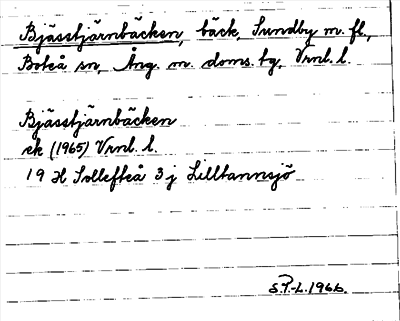 Bjässtjärnbäcken, bäck, Sundby m. fl.,
Boteå sn, Ång. m. doms. tg, Vrnl. l.
Bjässtjärnbäcken
ek (1965) Vrnl. l.
19 H Sollefteå 3 j Lilltannsjö
S.P.-L. 1966.